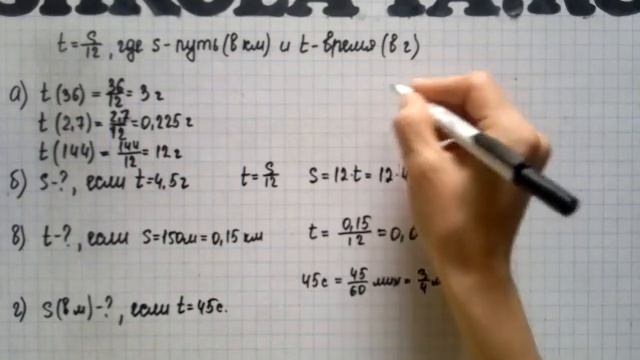 t = S/12, где s - путь (в км) и t - время (в г)
а) t (36) = 36/12 = 3 г
t (2,7) = 2,7/12 = 0,225 г
t (144) = 144/12 = 12 г
б) S - ?, если t = 4,5 г   t = S/12   S = 12·t = 12·4
в) t - ?, если S = 150 м = 0,15 км   t = 0,15/12 = 0,0
45с = 45/60 мин = 3/4 м
г) S (в м) - ?, если t = 45с.